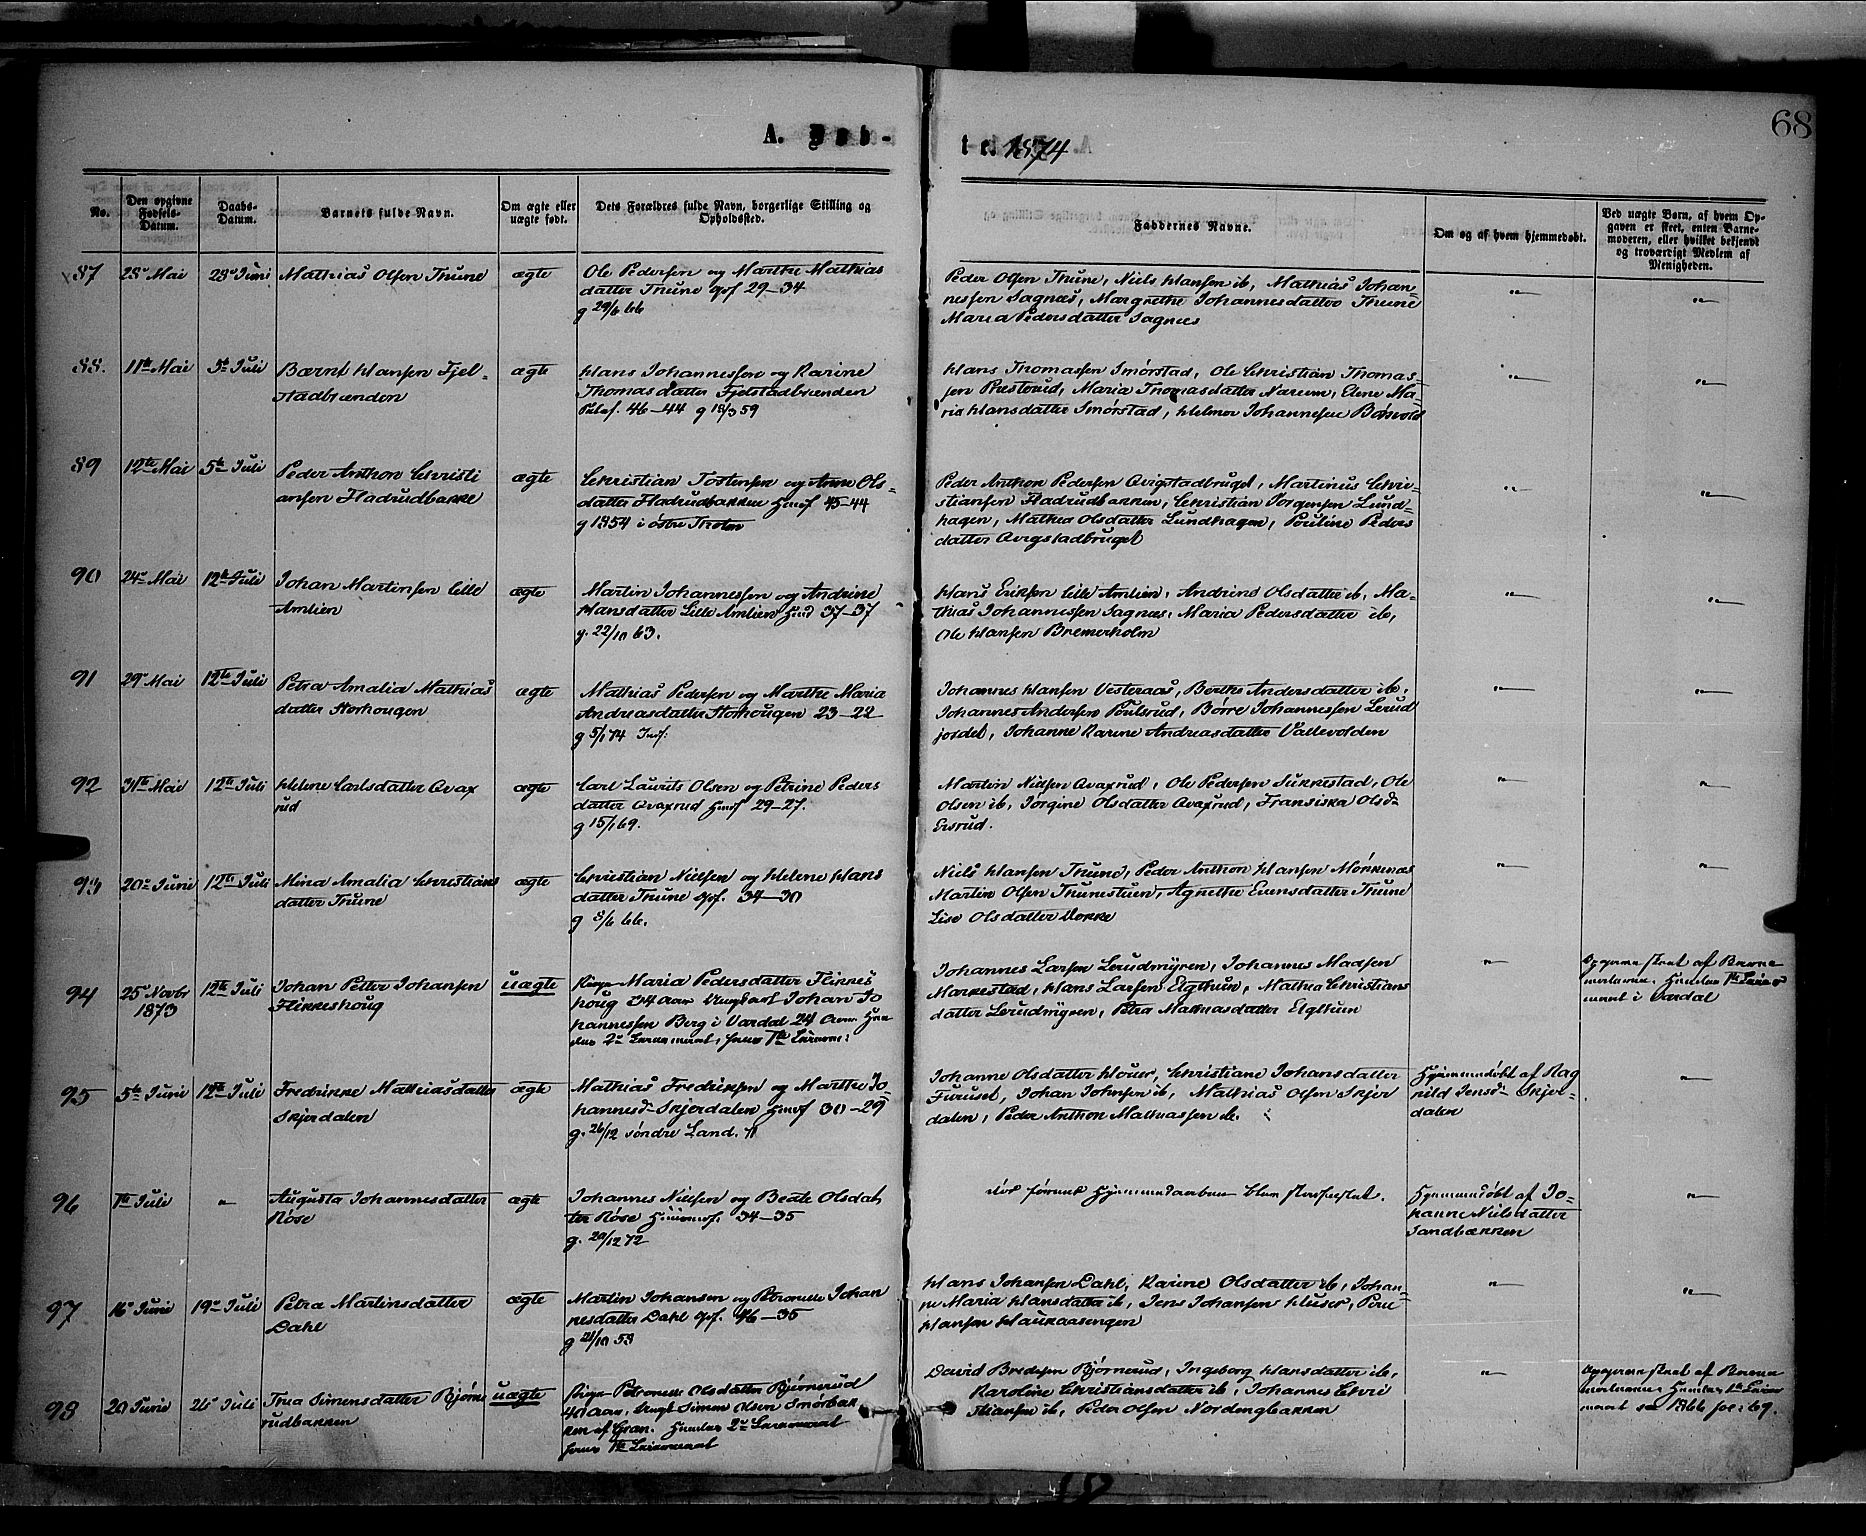 68
A. Døb-
te. 1874
No.
Den opgivne
Fødsels-
Datum.
Daabs-
Datum.
Barnets fulde Navn.
Om ægte eller
uægte født.
Dets Forældres fulde Navn, borgerlige Stilling og
Opholdssted.
Faddernes Navne.
Om og af hvem hjemmedøbt.
Ved uægte Børn, af hvem Op-
gaven er skeet, enten Barne-
moderen, eller hvilket bekjendt
og troværdigt Medlem af
Menigheden.
87 28 Mai 28 Juni Mathias Olsen Thune ægte
Ole Pedersen og Marthe Mathias
datter Thune 29–34
g 29/6 66
Peder Olsen Thune, Niels Hansen ib, Mathias Johan-
nessen Sagnæs, Margrethe Johannesdatter Thune
Maria Pedersdatter Sagnæs
88. 11te Mai 5te Juli Bernt Hansen Fjel-
stadbrænden ægte
Hans Johannessen og Karine
Thomasdatter Fjelstadbrænden
46–44 g 18/3 59
Hans Thomassen Smørstad, Ole Christian Thomas-
sen Præsterud, Maria Thomasdatter Narum, Elene Ma-
ria Hansdatter Smørstad, Helmer Johannesen
89 12te Mai 5te Juli Peder Anthon Christi
ansen Fladrudbakke ægte
Christian Tostensen og Anne Ols-
datter Fladrudbakken Huusf 45–44
g 1854 i østre Thoten
Peder Anthon Pedersen Qvigstadbruget, Martinus Chri-
stiansen Fladrudbakken, Christian Jørgensen Lund-
hagen, Mathea Olsdatter Lundhagen, Pouline Peders
datter Qvigstadbruget
90 24 Mai 12te Juli Johan Martinsen Lille
Amlien ægte
Martin Johannessen og Andrine
Hansdatter Lille Amlien 37–37
g. 22/10 63.
Hans Eriksen Lille Amlien, Andrine Olsdatter ib, Ma-
thias Johannessen Sagnæs, Maria Pedersdatter ib,
Ole Hansen Bremerholm
91 29 Mai 12te Juli Petra Amalia Mathias
datter Storhougen ægte
Mathias Pedersen og Marthe Maria
Andreasdatter Storhougen 23–22
g 5/1 74
Johannes Hansen Vesteraas, Berthe Andersdatter ib,
Johannes Andersen Poulsrud, Børre Johannessen Lerud
jordet, Johanne Karine Andreasdatter Vallevolden
92 31te Mai 12te Juli Helene Carlsdatter Qvax
rud ægte
Carl Laurits Olsen og Petrine Peders
datter Qvaxrud Huusf 29–27.
g 15/1 69.
Martin Nielsen Qvaxrud, Ole Pedersen Sukkestad, Ole
Olsen ib, Jørgine Olsdatter Qvaxrud, Fransiska Olsd-
Eksrud.
93 20 Juni 12te Juli Mina Amalia Christians
datter Thune ægte
Christian Nielsen og Helene Hans
datter Thune 34–30
g 8/6 66.
Niels Hansen Thune, Peder Anthon Hansen
Martin Olsen Thunestuen, Agnethe Evensdatter Thune
Lise Olsdatter
94 25 Novbr
1873 12te Juli Johan Petter Johansen
Flikkeshoug uægte
Pige Maria Pedersdatter Flikkes
houg 34 Aar Ungkarl Johan Jo
hannessen Berg i Vardal 24 Aar. Hen
des 2det Leiermaal, hans 1ste
Johannes Larsen Lerudmyren, Johannes Madsen
Markestad, Hans Larsen Elgthun, Mathea Christians
datter Lerudmyren, Petra Mathiasdatter Elgthun
Opgaven skeet af Barne
moderen, Hendes 1ste Leier
maal i Vardal
95 5te Juni 12te Juli Fredrikke Mathiasdatter
Skjerdalen ægte
Mathias Fredriksen og Marthe Jo
hannesd- Skjerdalen Huusf 30–29
g. 26/12 søndre Land.
Johanne Olsdatter, Christiane Johansdatter
Furuset, Johan Johnsen ib, Mathias Olsen Skjer
dalen, Peder Anthon Mathiassen ib.
Hjemmedøbt af Rag
nild Jensd- Skjer-
dalen
96 1ste Juli Augusta Johannesdatter
Røse ægte
Johannes Nielsen og Beate Olsdat
ter Røse 34–35
g. 28/12 72
Død førend Hjemmedaaben blev stadfæstet.
Hjemmedøbt af Jo-
hanne Nielsdatter
Sandbækken
97 16 Juni 19 Juli Petra Martinsdatter
Dahl ægte
Martin Johansen og Petronelle Johan
nesdatter Dahl 46–35
g 28/10 58
Hans Johansen Dahl, Karine Olsdatter ib, Johan-
ne Maria Hansdatter ib, Jens Johansen Huser,
Hansen Haukaasengen
98 20 Juni 26 Juli Thea Simensdatter Bjørne
rudbakken uægte
Pige Petronelle Olsdatter Bjørnerud
40 Aar, Ungk Simen Olsen Smørbak
ken af Gran. Hendes 2det Leiermaal
hans 1ste Leiermaal
David Bredesen Bjørnerud, Ingeborg Hansdatter ib,
Karoline Christiansdatter ib, Johannes Chri
stiansen ib, Peder Olsen Nordengbakken
Opgaven skeet af Barne
moderen, Hendes 1ste Leier
maal se 1866 fol: 69.